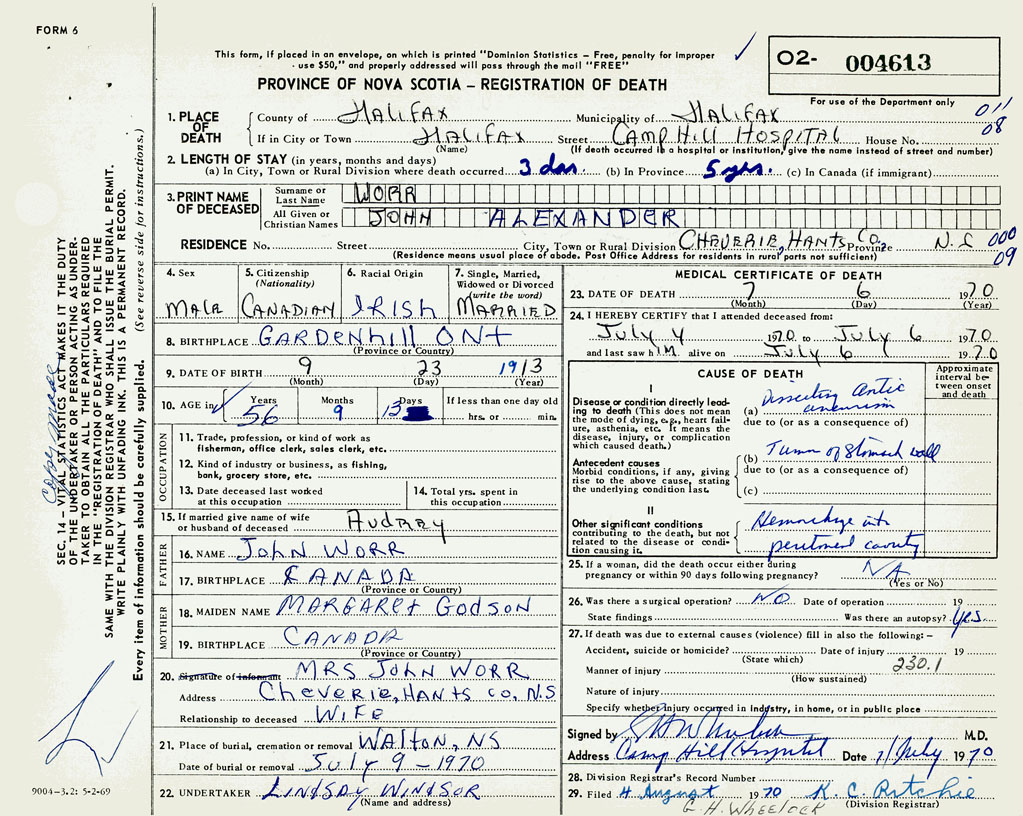 FORM 6
This form, if placed in an envelope, on which is printed "Dominion Statistics – Free, penalty for improper
use $50," and properly addressed will pass through the mail "FREE"
02- 004613
PROVINCE OF NOVA SCOTIA – REGISTRATION OF DEATH
For use of the Department only
011
08
1. PLACE OF DEATH
County of HALIFAX Municipality of HALIFAX
If in City or Town HALIFAX Street CAMP HILL HOSPITAL House No.
(Name) (If death occurred in a hospital or institution, give the name instead of street and number)
2. LENGTH OF STAY (in years, months and days)
(a) In City, Town or Rural Division where death occurred 3 das. (b) In Province 5 yrs. (c) In Canada (if immigrant)
3. PRINT NAME OF DECEASED
Surname or Last Name WORR
All Given or Christian Names JOHN ALEXANDER
RESIDENCE No. Street City, Town or Rural Division CHEVERIE, HANTS Co. Province N.S 000
09
(Residence means usual place of abode. Post Office Address for residents in rural parts not sufficient)
4. Sex
MALE
5. Citizenship
(Nationality)
CANADIAN
6. Racial Origin
IRISH
7. Single, Married,
Widowed or Divorced
(write the word)
MARRIED
8. BIRTHPLACE GARDENHILL ONT
(Province or Country)
9. DATE OF BIRTH 9 23 1913
(Month) (Day) (Year)
10. AGE in Years Months Days If less than one day old
56 9 13 hrs. or min.
OCCUPATION
11. Trade, profession, or kind of work as
fisherman, office clerk, sales clerk, etc.
12. Kind of industry or business, as fishing,
bank, grocery store, etc.
13. Date deceased last worked
at this occupation
14. Total yrs. spent in
this occupation
15. If married give name of wife
or husband of deceased AUDREY
FATHER
16. NAME JOHN WORR
17. BIRTHPLACE CANADA
(Province or Country)
MOTHER
18. MAIDEN NAME MARGARET GODSON
19. BIRTHPLACE CANADA
(Province or Country)
20. Signature of informant MRS JOHN WORR
Address CHEVERIE, HANTS CO, N.S
Relationship to deceased WIFE
21. Place of burial, cremation or removal WALTON, NS
Date of burial or removal JULY 9 - 1970
22. UNDERTAKER LINDSAY WINDSOR
(Name and address)
MEDICAL CERTIFICATE OF DEATH
23. DATE OF DEATH 7 6 1970
(Month) (Day) (Year)
24. I HEREBY CERTIFY that I attended deceased from:
July 4 1970 to July 6 1970
and last saw h IM alive on July 6 1970
CAUSE OF DEATH
Approximate
interval be-
tween onset
and death
I
Disease or condition directly lead-
ing to death (This does not mean
the mode of dying, e.g., heart fail-
ure, asthenia, etc. It means the
disease, injury, or complication
which caused death.)
(a) Dissecting Aortic
aneurism
due to (or as a consequence of)
Antecedent causes
Morbid conditions, if any, giving
rise to the above cause, stating
the underlying condition last.
(b) Tumor of Stomach wall
due to (or as a consequence of)
(c)
II
Other significant conditions
contributing to the death, but not
related to the disease or condi-
tion causing it.
Hemorrhage into
peritoneal cavity
25. If a woman, did the death occur either during
pregnancy or within 90 days following pregnancy? NA
(Yes or No)
26. Was there a surgical operation? NO Date of operation 19
State findings Was there an autopsy? Yes.
27. If death was due to external causes (violence) fill in also the following:–
Accident, suicide or homicide? Date of injury 19
(State which)
230.1
Manner of injury
(How sustained)
Nature of injury
Specify whether injury occurred in industry, in home, or in public place
Signed by M.D.
Address Camp Hill Hospital Date 7/July 1970
28. Division Registrar's Record Number
29. Filed 4 August 1970 K. C. Ritchie
G. H. WHEELOCK (Division Registrar)
SEC. 14 – VITAL STATISTICS ACT MAKES IT THE DUTY
OF THE UNDERTAKER OR PERSON ACTING AS UNDER-
TAKER TO OBTAIN ALL THE PARTICULARS REQUIRED
IN THE "REGISTRATION OF DEATH" AND TO FILE THE
SAME WITH THE DIVISION REGISTRAR WHO SHALL ISSUE THE BURIAL PERMIT.
WRITE PLAINLY WITH UNFADING INK. THIS IS A PERMANENT RECORD.
Every item of information should be carefully supplied. (See reverse side for instructions.)
9004-3.2: 5-2-69